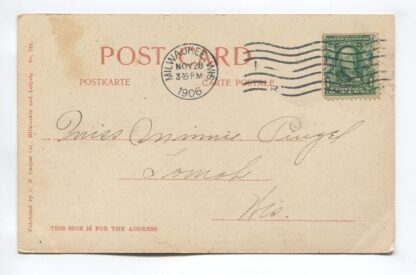 POST CARD
POSTKARTE
CARTE POSTALE
MILWAUKEE, WIS.
NOV 28
3 30 PM
1906
Miss Minnie Pingel
Tomah
Wis.
THIS SIDE IS FOR THE ADDRESS
Published by Co., Milwaukee and Leipzig.